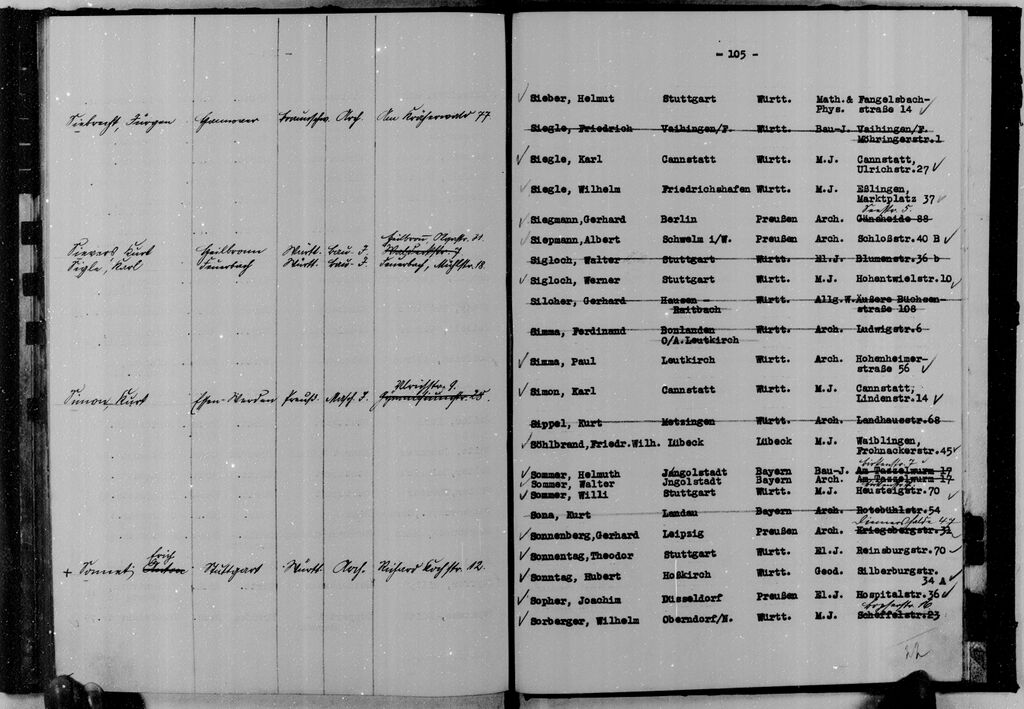 Siebrecht, Jürgen Hannover Braunschw. Arch. Am Kräherwald 77
Heilbronn, 31.
Sievers Kurt Heilbronn Württ. Bau-I.
Sigle, Karl Feuerbach Württ. Bau-I. Feuerbach, Mühlstr. 18.
Ulrichstr. 9.
Simon, Kurt Essen-Werden Preuß. Masch. I. Gymnasiumstr. 28.
Erich
+ Sonnet, Anton Stuttgart Württ. Arch. Richard Kochstr. 12.
- 105 -
✓ Sieber, Helmut Stuttgart Württ. Math.& Fangelsbach-
Phys. straße 14 ✓
Siegle, Friedrich Vaihingen/F. Württ. Bau-J. Vaihingen/F.
Möhringerstr.1
✓ Siegle, Karl Cannstatt Württ. M.J. Cannstatt,
Ulrichstr.27 ✓
✓ Siegle, Wilhelm Friedrichshafen Württ. M.J. Eßlingen,
Marktplatz 37 ✓
Seestr. 5
✓ Siegmann,Gerhard Berlin Preußen Arch. Gänsheide 88
✓ Siepmann,Albert Schwelm i/W. Preußen Arch. Schloßstr.40 B ✓
Sigloch, Walter Stuttgart Württ. El.J. Blumenstr.36 b
✓ Sigloch, Werner Stuttgart Württ. M.J. Hohentwielstr.10 ✓
Silcher, Gerhard Hausen - Württ. Allg.W. Äußere Büchsen-
Raitbach straße 108
Simma, Ferdinand Bonlanden Württ. Arch. Ludwigstr.6
O/A.Leutkirch
✓ Simma, Paul Leutkirch Württ. Arch. Hohenheimer-
straße 56 ✓
✓ Simon, Karl Cannstatt Württ. M.J. Cannstatt,
Lindenstr.14 ✓
Sippel, Kurt Metzingen Württ. Arch. Landhausstr.68
✓ Söhlbrand,Friedr.Wilh. Lübeck Lübeck M.J. Waiblingen,
Fronackerstr.45 ✓
Birkenstr. 7
✓ Sommer, Helmuth Jngolstadt Bayern Bau-J. Am Tazzelwurm 17
✓ Sommer, Walter Jngolstadt Bayern Arch. Am Tazzelwurm 17
✓ Sommer, Willi Stuttgart Württ. M.J. Heusteigstr.70 ✓
Sona, Kurt Landau Bayern Arch. Rotebühlstr.54
✓ Sonnenberg,Gerhard Leipzig Preußen Arch. Kriegsbergstr.31
✓ Sonnentag,Theodor Stuttgart Württ. El.J. Reinsburgstr.70 ✓
✓ Sonntag, Hubert Hoßkirch Württ. Geod. Silberburgstr.
34 A ✓
✓ Sopher, Joachim Düsseldorf Preußen El.J. Hospitalstr.36 ✓
✓ Sorberger, Wilhelm Oberndorf/N. Württ. M.J. Scheffelstr.23